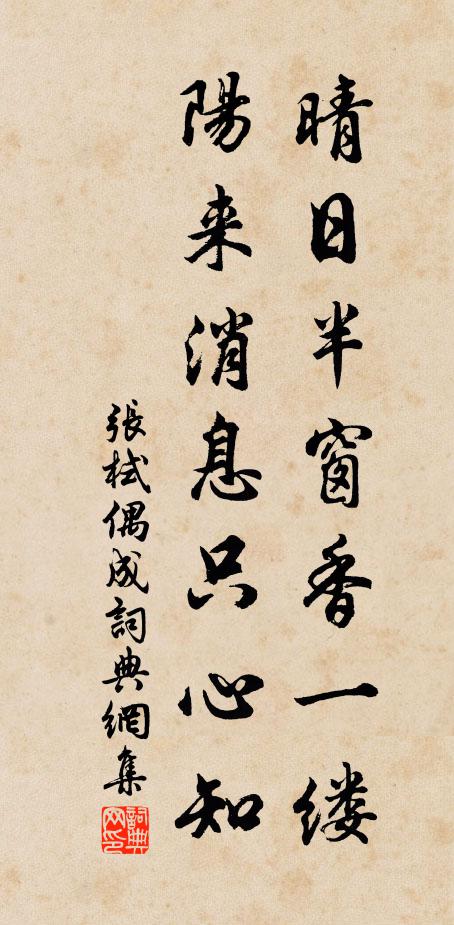 晴日半窗香一缕
陽来消息只心知
張栻偶成詞典網集
詞典网印